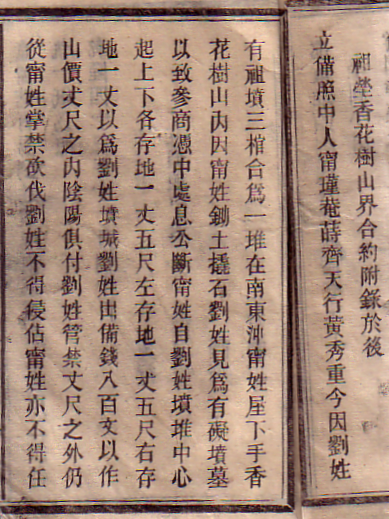 祖塋香花樹山界合約附錄於後
立備照中人甯瑾菴蒔齊天行黃秀重今因劉姓
有祖墳三棺合爲一堆在南東沖甯姓屋下手香
花樹山内因甯姓鋤土撬石劉姓見爲有礙墳墓
以致參商憑中處息公斷甯姓自劉姓墳堆中心
起上下各存地一丈五尺左存地一丈五尺右存
地一丈以爲劉姓墳城劉姓出備錢八百文以作
山價丈尺之内陰陽俱付劉姓管禁丈尺之外仍
從甯姓掌禁欲伐劉姓不得侵估甯姓亦不得任